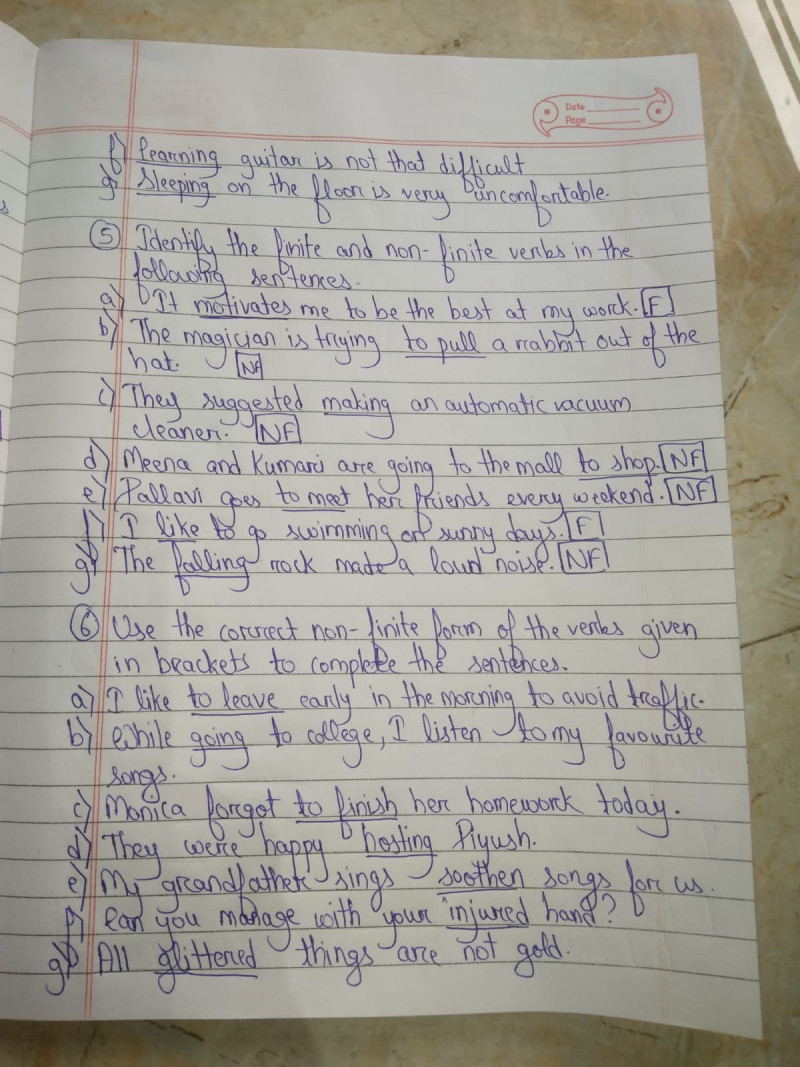 Date
Page
f) Learning guitar is not that difficult
g) Sleeping on the floor is very uncomfortable.
5 Identify the finite and non-finite verbs in the
following sentences.
a) It motivates me to be the best at my work. F
b) The magician is trying to pull a rabbit out of the
hat. NF
c) They suggested making an automatic vacuum
cleaner. NF
d) Meena and Kumari are going to the mall to shop. NF
e) Pallavi goes to meet her friends every weekend. NF
f) I like to go swimming on sunny days. F
g) The falling rock made a loud noise. NF
6 Use the correct non-finite form of the verbs given
in brackets to complete the sentences.
a) I like to leave early in the morning to avoid traffic.
b) While going to college, I listen to my favourite
songs.
c) Monica forgot to finish her homework today.
d) They were happy hosting Piyush.
e) My grandfather sings soothen songs for us.
f) Can you manage with your injured hand?
g) All glittered things are not gold.